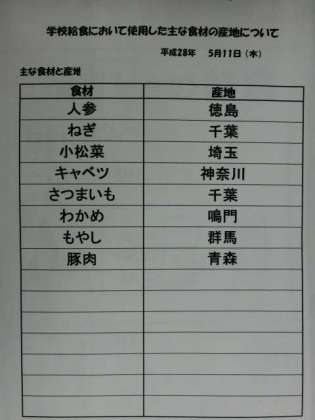 学校給食において使用した主な食材の産地について
平成28年 5月11日（水）
主な食材と産地
食材 産地
人参 徳島
ねぎ 千葉
小松菜 埼玉
キャベツ 神奈川
さつまいも 千葉
わかめ 鳴門
もやし 群馬
豚肉 青森